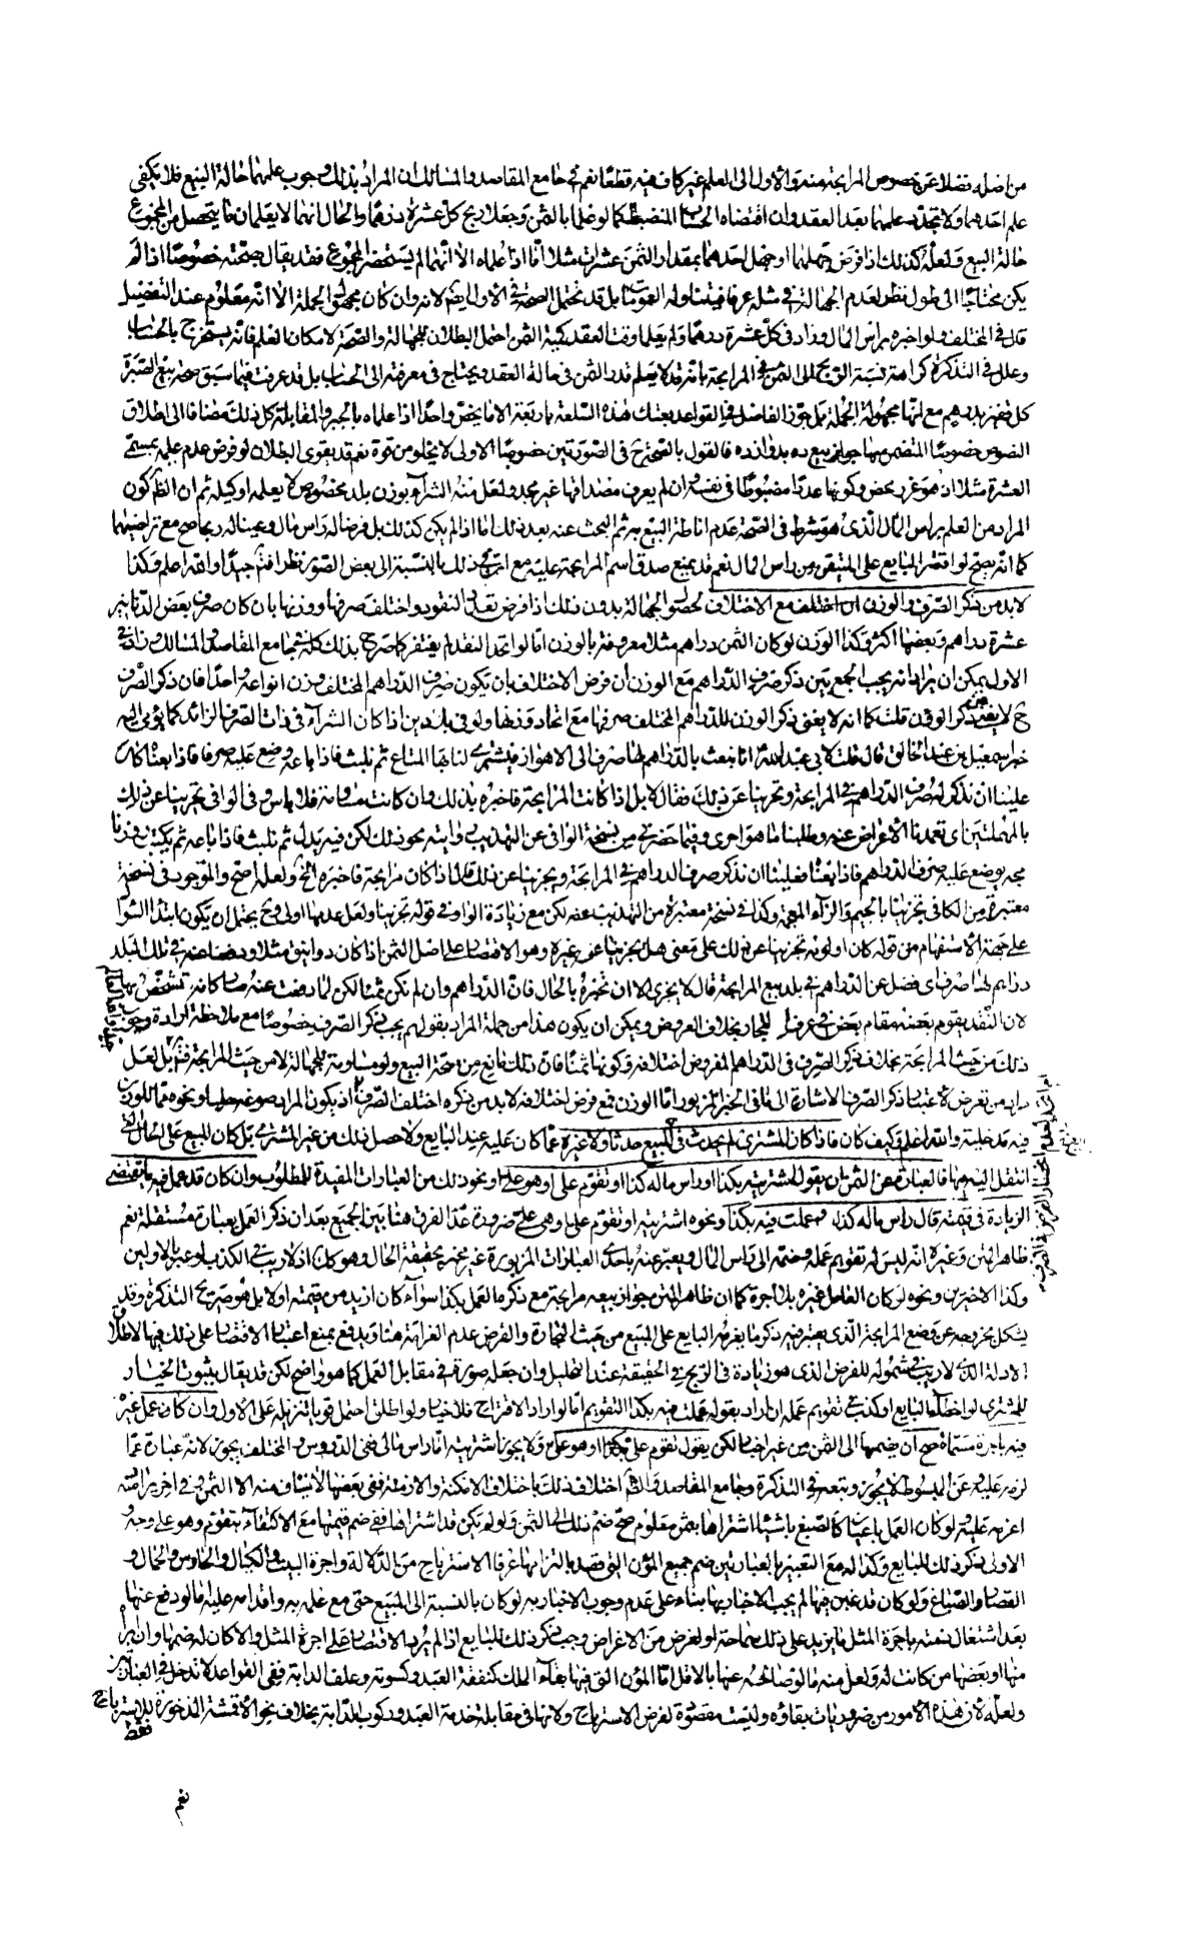 من اصله فضلا عن خصوص المرابحة منه والاولى الى العلم غير كاف فيه قطعا نعم في جامع المقاصد والمسالك ان المراد بذلك وجوب علمهما حالة البيع فلا يكفي
علم احدهما ولا تجدد علمهما بعد العقد وان اقتضاه الحساب المنضبط كما لو علما بالثمن وجعلا ربح كل عشرة درهما والحال انهما لا يعلمان ما يتحصل من المجموع
حالة البيع ولعله كذلك اذا فرض جهلهما او جهل احدهما بمقدار الثمن عشرات مثلا اما اذا علماه الا انهما لم يستحضرا المجموع فقد يقال بصحته خصوصا اذا لم
يكن محتاجا الى طول نظر لعدم الجهالة في مثله عرفا فيتناوله العموم بل قد تحتمل الصحة في الاول ايضا لانه وان كان مجهول الجملة الا انه معلوم عند التفصيل
قال في المختلف ولو اخبره براس المال وزاد في كل عشرة درهما ولم يعلما وقت العقد كمية الثمن احتمل البطلان للجهالة والصحة لامكان العلم فانه يستخرج بالحساب
وعلل في التذكرة كراهة نسبة الربح الى الثمن في المرابحة بانه قد لا يعلم قدر الثمن في حالة العقد ويحتاج في معرفته الى الحساب بل قد عرفت فيما سبق صحة بيع الصبرة
كل قفيز بدرهم مع انها مجهولة الجملة بل جوز الفاضل في القواعد بعتك هذه السلعة باربعة الا ما يخص واحدا اذا علماه بالجبر والمقابلة كل ذلك مضافا الى اطلاق
النصوص خصوصا المتضمن منها جواز بيع ده بدوازده فالقول بالصحة ح في الصورتين خصوصا الاولى لا يخلو من قوة نعم قد يقوى البطلان لو فرض عدم علمه بمسمى
العشرة مثلا اذ هو غرر محض وكونها عددا مضبوطا في نفسه وان لم يعرف مصداقها غير مجد ولعل منه الشراء بوزن بلد مخصوص لا يعلمه او كيله ثم ان الظ كون
المراد من العلم براس المال الذي هو شرط في الصحة عدم اناطة البيع به ثم البحث عنه بعد ذلك اما اذا لم يكن كذلك بل فرضا له راس مال وعينا له ربحا صح مع تراضيهما
كما انه يصح لو اقتصر البايع على المتيقن من راس المال نعم قد يمنع صدق اسم المرابحة عليه مع ذلك بالنسبة الى بعض الصور نظر فتأمل جيدا والله اعلم وكذا
لا بد من ذكر الصرف والوزن ان اختلف مع الاختلاف لحصول الجهالة بدون ذلك اذا فرض تعدد النقود واختلف صرفها ووزنها بان كان صرف بعض الدنانير
عشرة دراهم وبعضها اكثر وكذا الوزن لو كان الثمن دراهم مثلا معروفة بالوزن اما لو اتحد النقد لم يفتقر كما صرح بذلك كله في جامع المقاصد والمسالك وزاد في
الاول يمكن ان يراد انه يجب الجمع بين ذكر صرف الدراهم مع الوزن ان فرض الاختلاف بان يكون صرف الدراهم المختلف وزن انواعه واحدا فان ذكر الصرف
ح لا يغني عن ذكر الوزن قلت كما انه لا يغني ذكر الوزن للدراهم المختلف صرفها مع اتحاد وزنها ولو في بلدين اذا كان الشراء في ذات الصرف الزائد كما يؤمي اليه
خبر اسمعيل بن عبد الخالق قال قلت لابي عبد الله ع انا نبعث بالدراهم لها صرف الى الاهواز فيشترى لنا بها المتاع ثم نلبث فاذا باعه وضع عليه صرفا فاذا بعناه كان
علينا ان نذكر له صرف الدراهم في المرابحة وتحرينا عن ذلك فقال لا بل اذا كانت المرابحة فاخبره بذلك وان كانت مساومة فلا باس وفي الوافي تحرينا عن ذلك
بالمهملتين اي تعمدنا الاعراض عنه وطلبنا ما هو احرى وفيما حضرني من نسخة الوافي عن التهذيب روايته نحو ذلك لكن فيه بدل ثم نلبث فاذا باعه ثم يكتب روزنا
مجه يوضع عليه صرف الدراهم فاذا بعنا فعلينا ان نذكر صرف الدراهم في المرابحة ويجزينا عن ذلك قال اذا كان مرابحة فاخبره الخ ولعله اصح والموجود في نسخة
معتبرة من الكافي تجزينا بالجيم والزاء المعجمة وكذا في نسخة معتبرة من التهذيب عنه لكن مع زيادة الواو في قوله تجزينا ولعل عدمها اولى وح يحتمل ان يكون ابتداء السؤال
على جهة الاستفهام من قوله كان او لونه تجزينا عن ذلك على معنى هل يجزينا عن غيره وهو الاقتصار على اصل الثمن اذا كان دوانيق مثلا في تلك البلد
دراهم لها صرف اي فضل عن الدراهم في بلد بيع المرابحة قال لا يجزي الا ان تخبره بالحال فان الدراهم وان لم تكن ثمنا لكن لما دفعت عنه صار كانه تشخص بها
لان النقد يقوم بعضه مقام بعض في عرف التجار بخلاف العروض ويمكن ان يكون هذا من جملة المراد بقولهم يجب ذكر الصرف خصوصا مع ملاحظة ارادة وجوب
ذلك من حيث المرابحة بخلاف ذكر الصرف في الدراهم المفروض اختلافه وكونها ثمنا فان ذلك مانع من صحة البيع ولو مساومة للجهالة لا من حيث المرابحة فتأمل بل لعل
مراد من تعرض لاعتبار ذكر الصرف الاشارة الى ما في الخبر المزبور اما الوزن فمع فرض اختلافه لا بد من ذكره اختلف الصرف او لا اذ يكون المراد مصوغه حليا ونحوه مما للوزن
فيه مدخلية والله اعلم وكيف كان فاذا كان المشتري لم يحدث في المبيع حدثا ولا غيره عما كان عليه عند البايع ولا حصل ذلك من غير المشتري بل كان المبيع على الحال التي
انتقل اليه بها فالعبارة عن الثمن ان يقول اشتريته بكذا او راس ماله كذا او تقوم علي او هو علي او نحو ذلك من العبارات المفيدة للمطلوب وان كان قد عمل فيه ما يقتضي
الزيادة في قيمته قال راس ماله كذا وعملت فيه بكذا ونحوه اشتريته او تقوم علي او هي على ضرورة عدم الفرق هنا بين الجميع بعد ان ذكر العمل بعبارة مستقلة نعم
ظاهر المتن وغيره انه ليس له تقويم عمله وضمه الى راس المال ويعبر عنه باحدى العبارات المزبورة غير مخبر بحقيقة الحال وهو كذلك اذ لا ريب في الكذب لو عبر بالاولين
وكذا الاخيرين ونحوه لو كان العامل غيره بلا اجرة كما ان ظاهر المتن جواز بيعه مرابحة مع ذكر ما العمل بكذا سواء كان ازيد من قيمته او لا بل هو صريح التذكرة وقد
يشكل بخروجه عن وضع المرابحة الذي يعتبر فيه ذكر ما يغرمه البايع على المبيع من حيث التجارة والفرض عدم الغرامة هنا ويدفع بمنع اعتبار الاقتصار على ذلك فيها لاطلاق
الادلة الذي لا ريب في شموله للفرض الذي هو زيادة في الربح في الحقيقة عند التحليل وان جعله صورة في مقابل العمل كما هو واضح لكن قد يقال بثبوت الخيار
للمشتري لو اخطأ البايع او كذب في تقويم عمله ان اراد بقوله عملت فيه بكذا التقويم اما لو اراد الاقتراح فلا خيار ولو اطلق احتمل قويا تنزيله على الاول وان كان عمل غيره
فيه باجرة مسماة صح ان يضمها الى الثمن من غير اخبار لكن يقول تقوم علي بكذا او هو علي ولا يجوز اشتريته اما راس مالي ففي الدروس والمختلف يجوز لانه عبارة عما
لزمه عليه وعن المبسوط لا يجوز وتبعه في التذكرة وجامع المقاصد والظ اختلاف ذلك باختلاف الامكنة والازمنة ففي بعضها لا يستفاد منه الا الثمن وفي اخر يراد منه ما
اغرمه عليه ولو كان العمل باعيان كالصبغ باشياء اشتراها بثمن معلوم صح ضم ذلك الى الثمن ولو لم يكن قد اشتراها ففي ضم قيمتها مع الاكتفاء بتقوم وهو علي وجه
الاولى ذكر ذلك للبايع وكذا له مع التعبير بالعبارتين ضم جميع المؤن التي قصد بالتزامها عرفا الاسترباح من الدلالة واجرة البيت والكيال والحارس والحمال و
القصار والصباغ ولو كان قد غبن فيها لم يجب الاخبار بها بناء على عدم وجوب الاخبار به لو كان بالنسبة الى المبيع حتى مع علمه به واقدامه عليه فالو دفع عنها
بعد اشتغال ذمته باجرة المثل ما يزيد على ذلك سماحة او لغرض من الاغراض وجب ذكر ذلك للبايع اذا لم يرد الاقتصار على اجرة المثل والا كان له ضمها وان ابرأ
منها او بعضها من كانت له ولعل منه ما لو صالحه عنها بالاقل اما المؤن التي فيها بقاء الملك كنفقة العبد وكسوته وعلف الدابة ففي القواعد لا تدخل في العبارتين
ولعله لان هذه الامور من ضروريات بقاؤه وليست مقصودة لغرض الاسترباح ولانها في مقابلة خدمة العبد وركوب الدابة بخلاف نحو الاقمشة المدخورة للاسترباح
فقط
نعم